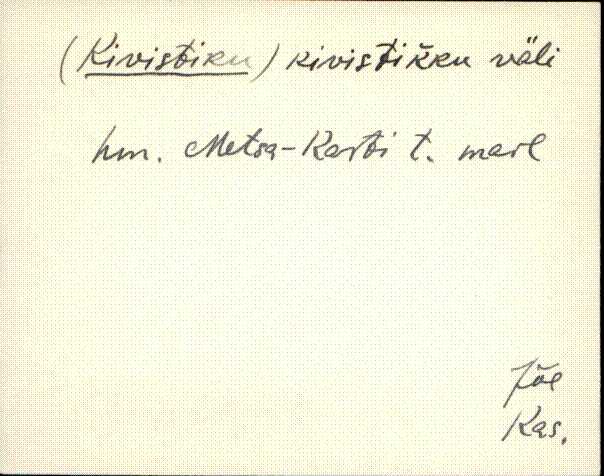 (Kivistiku) kivistikku väli
hm. Metsa-Kasti t. maal
Jõe
Kas.